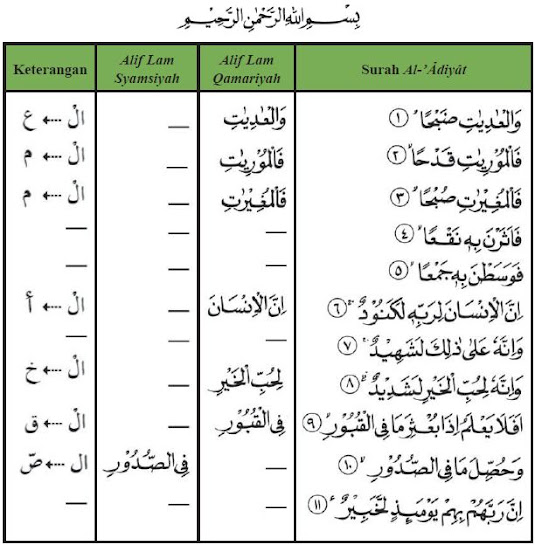 بِسْمِ اللهِ الرَّحْمٰنِ الرَّحِيْمِ
Keterangan | Alif Lam Syamsiyah | Alif Lam Qamariyah | Surah Al-'Âdiyât
ال ← ع | — | وَالْعٰدِيٰتِ | وَالْعٰدِيٰتِ ضَبْحًاۙ ۝١
ال ← م | — | فَالْمُوْرِيٰتِ | فَالْمُوْرِيٰتِ قَدْحًاۙ ۝٢
ال ← م | — | فَالْمُغِيْرٰتِ | فَالْمُغِيْرٰتِ صُبْحًاۙ ۝٣
— | — | — | فَاَثَرْنَ بِهٖ نَقْعًاۙ ۝٤
— | — | — | فَوَسَطْنَ بِهٖ جَمْعًاۙ ۝٥
ال ← أ | — | اِنَّ الْاِنْسَانَ | اِنَّ الْاِنْسَانَ لِرَبِّهٖ لَكَنُوْدٌۚ ۝٦
— | — | — | وَاِنَّهٗ عَلٰى ذٰلِكَ لَشَهِيْدٌۚ ۝٧
ال ← خ | — | لِحُبِّ الْخَيْرِ | وَاِنَّهٗ لِحُبِّ الْخَيْرِ لَشَدِيْدٌۗ ۝٨
ال ← ق | — | فِى الْقُبُوْرِ | اَفَلَا يَعْلَمُ اِذَا بُعْثِرَ مَا فِى الْقُبُوْرِۙ ۝٩
ال ← صّ | فِى الصُّدُوْرِ | — | وَحُصِّلَ مَا فِى الصُّدُوْرِۙ ۝١٠
— | — | — | اِنَّ رَبَّهُمْ بِهِمْ يَوْمَىِٕذٍ لَّخَبِيْرٌ ࣖ ۝١١